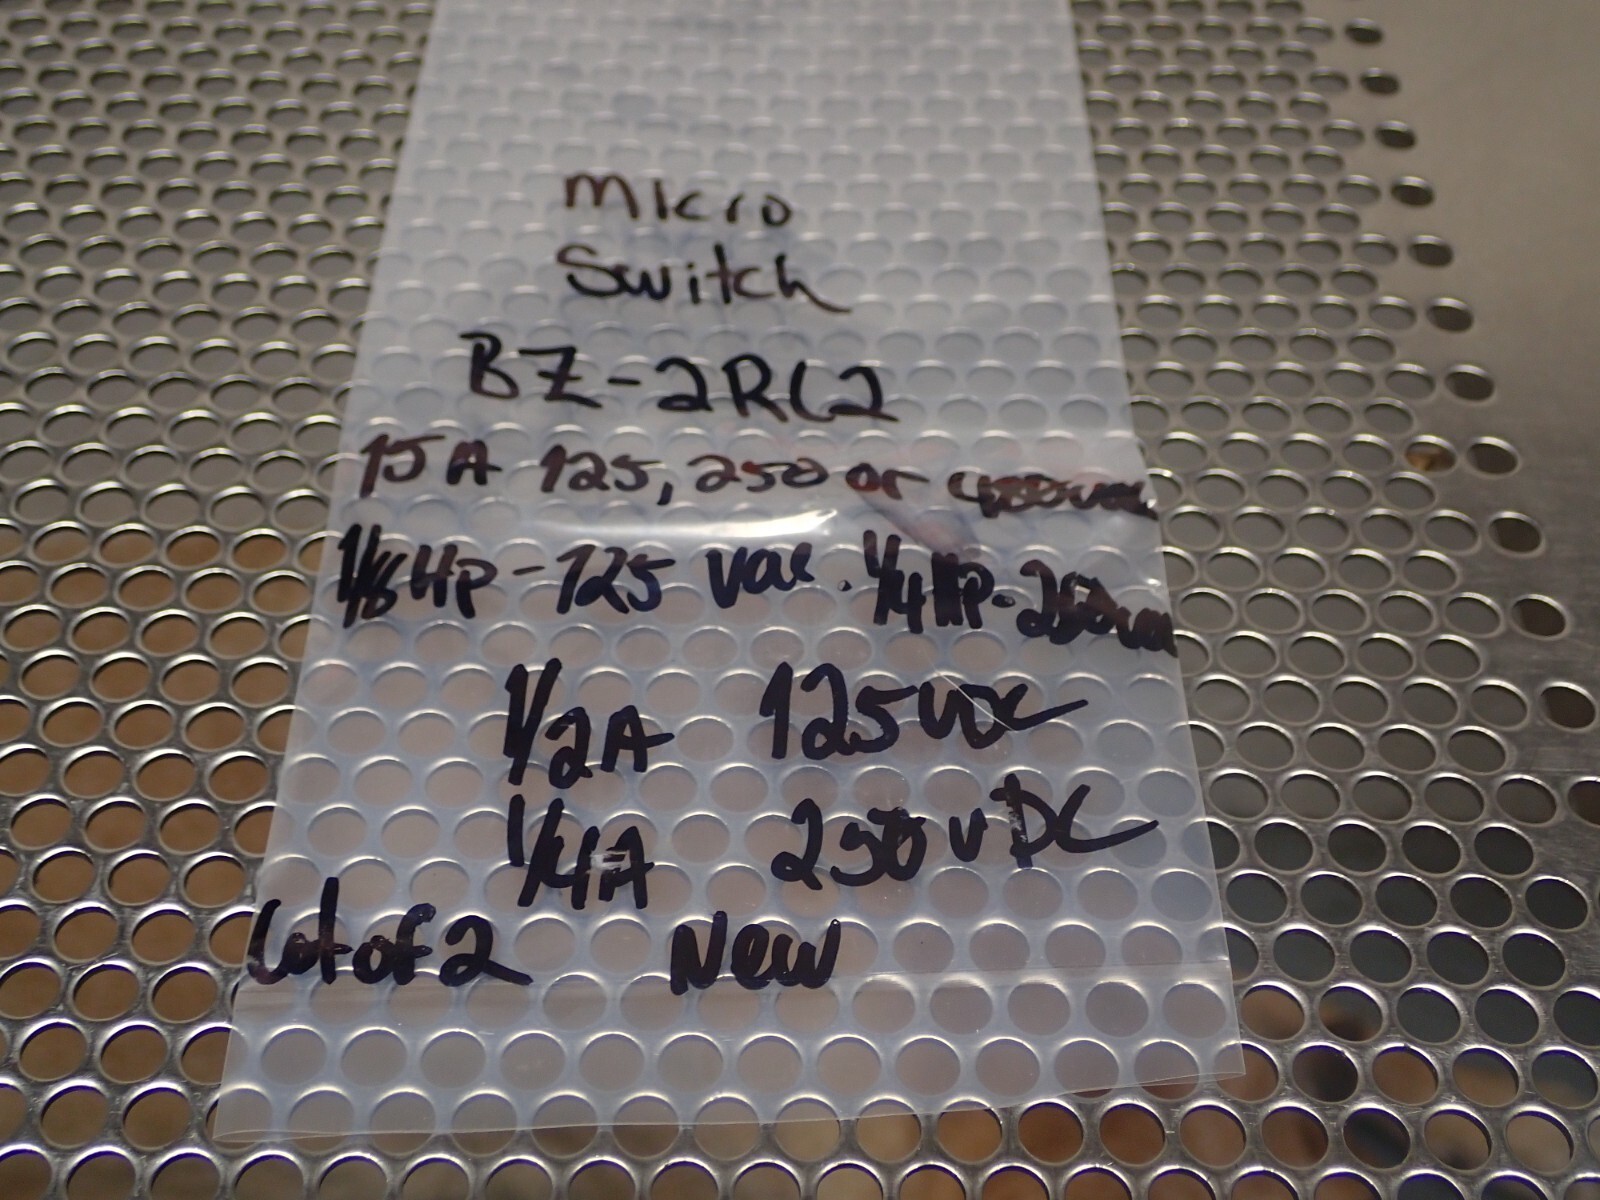 Micro
Switch
BZ-2RL2
15A 125, 250 or 480vac
1/8 HP - 125 vac. 1/4 HP - 250vac
1/2A 125vdc
1/4A 250vDC
Lot of 2 New